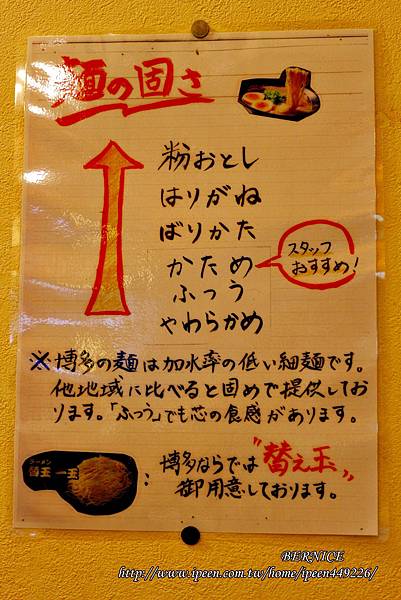 麺の固さ
粉おとし
はりがね
ばりかた
かため
ふつう
やわらかめ
スタッフ
おすすめ!
※博多の麺は加水率の低い細麺です。
他地域に比べると固めで提供してお
ります。「ふつう」でも芯の食感があります。
ラーメン
替玉 一玉
:博多ならでは"替え玉"
御用意しております。
BERNICE
http://www.ipeen.com.tw/home/ipeen449226/